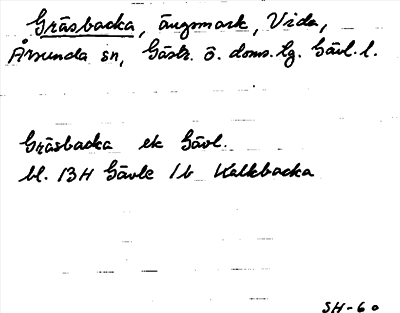 Gräsbacka, ängsmark, Vida,
Årsunda sn, Gästr. ö. doms. hg. Gävl. l.
Gräsbacka ek Gävl.
bl. 13H Gävle 1b Kalkbacka
SH-60